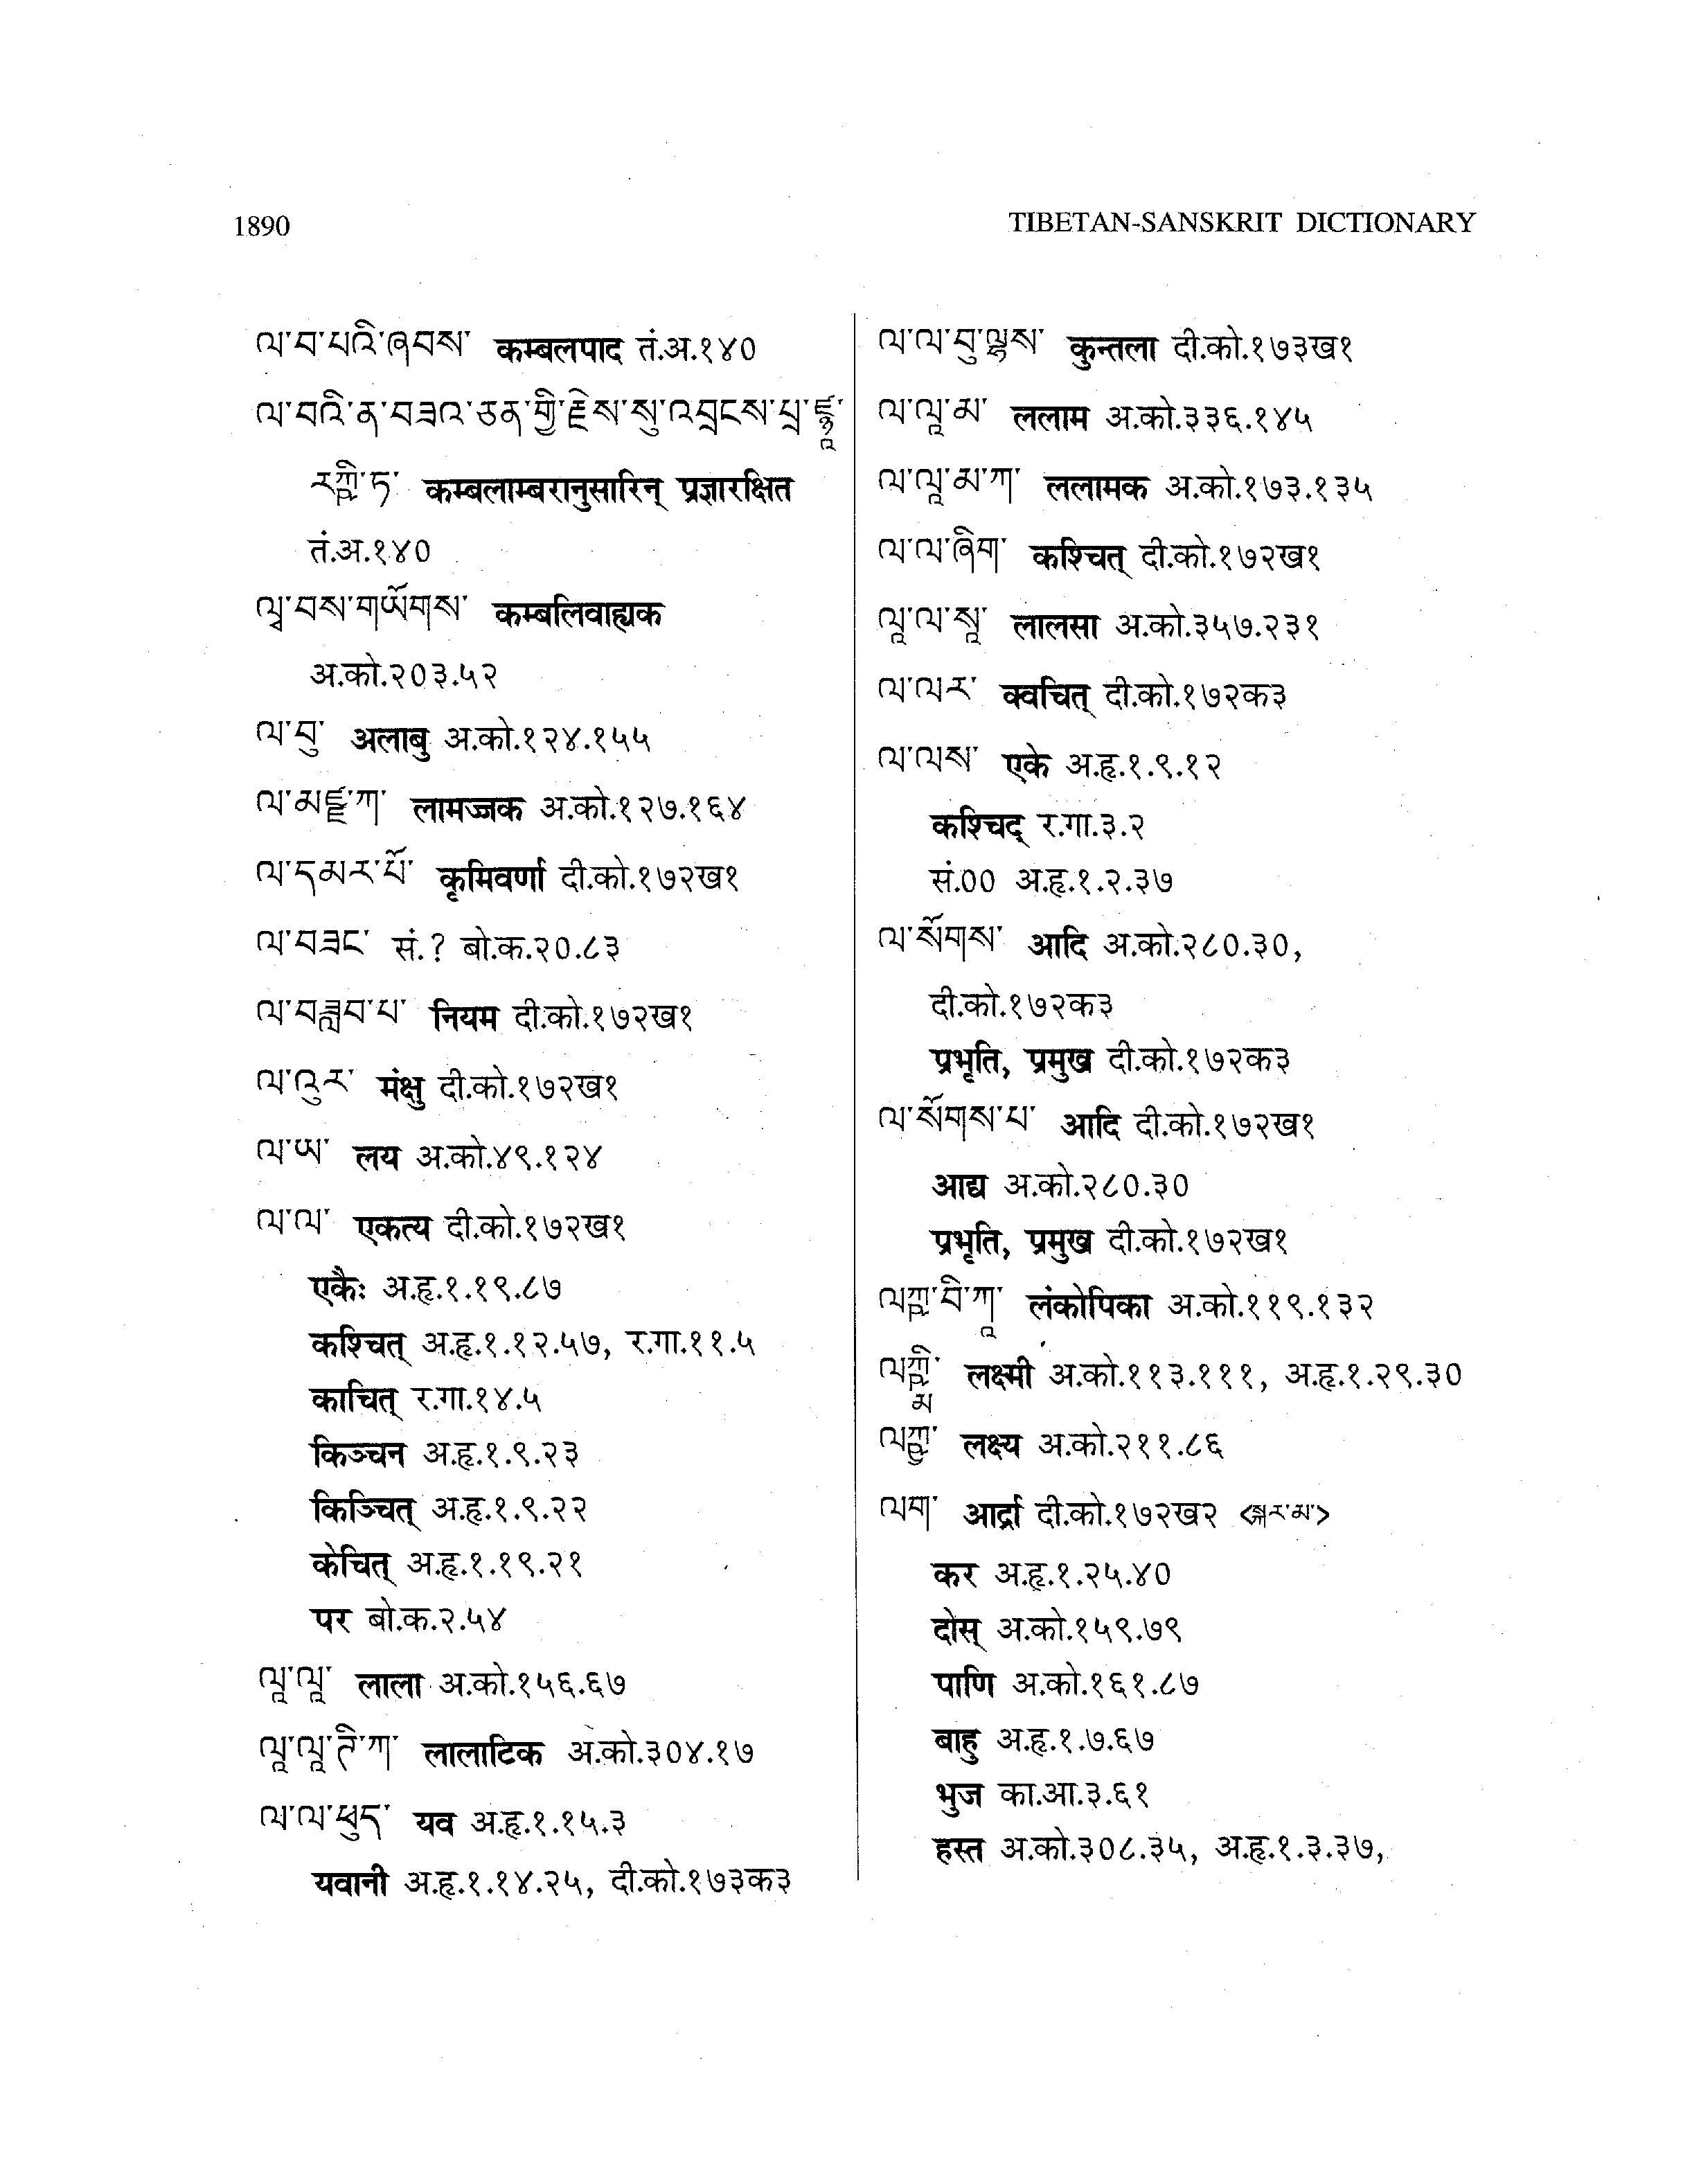 1890
TIBETAN-SANSKRIT DICTIONARY
ལ་བ་པའི་ཞབས་ कम्बलपाद तं.अ.१४०
ལ་བའི་ན་བཟའ་ཅན་གྱི་རྗེས་སུ་འབྲངས་པྲ་ཛྙཱ་
རཀྵི་ཏ་ कम्बलाम्बरानुसारिन् प्रज्ञारक्षित
तं.अ.१४०
ལྭ་བས་གཡོགས་ कम्बलिवाह्यक
अ.को.२०३.५२
ལ་བུ་ अलाबु अ.को.१२४.१५५
ལ་མཛྫ་ཀ་ लामज्जक अ.को.१२७.१६४
ལ་དམར་པོ་ कृमिवर्णा दी.को.१७२ख१
ལ་བཟང་ सं.? बो.क.२०.८३
ལ་བཟླབ་པ་ नियम दी.को.१७२ख१
ལ་འུར་ मंक्षु दी.को.१७२ख१
ལ་ཡ་ लय अ.को.४९.१२४
ལ་ལ་ एकत्य दी.को.१७२ख१
एकैः अ.हृ.१.१९.८७
कश्चित् अ.हृ.१.१२.५७, र.गा.११.५
काचित् र.गा.१४.५
किञ्चन अ.हृ.१.९.२३
किञ्चित् अ.हृ.१.९.२२
केचित् अ.हृ.१.१९.२१
पर बो.क.२.५४
ལཱ་ལཱ་ लाला अ.को.१५६.६७
ལཱ་ལཱ་ཊི་ཀ་ लालाटिक अ.को.३०४.१७
ལ་ལ་ཕུད་ यव अ.हृ.१.१५.३
यवानी अ.हृ.१.१४.२५, दी.को.१७३क३
ལ་ལ་བུ་ལྟས་ कुन्तला दी.को.१७३ख१
ལ་ལཱ་མ་ ललाम अ.को.३३६.१४५
ལ་ལཱ་མ་ཀ་ ललामक अ.को.१७३.१३५
ལ་ལ་ཞིག་ कश्चित् दी.को.१७२ख१
ལཱ་ལ་སཱ་ लालसा अ.को.३५७.२३१
ལ་ལར་ क्वचित् दी.को.१७२क३
ལ་ལས་ एके अ.हृ.१.९.१२
कश्चिद् र.गा.३.२
सं.०० अ.हृ.१.२.३७
ལ་སོགས་ आदि अ.को.२८०.३०,
दी.को.१७२क३
प्रभृति, प्रमुख दी.को.१७२क३
ལ་སོགས་པ་ आदि दी.को.१७२ख१
आद्य अ.को.२८०.३०
प्रभृति, प्रमुख दी.को.१७२ख१
ལཀྵ་བི་ཀཱ་ लंकोपिका अ.को.११९.१३२
ལཀྵྨི་ लक्ष्मी अ.को.११३.१११, अ.हृ.१.२९.३०
ལཀྵྱ་ लक्ष्य अ.को.२११.८६
ལག་ आर्द्रा दी.को.१७२ख२ <སྐར་མ་>
कर अ.हृ.१.२५.४०
दोस् अ.को.१५९.७९
पाणि अ.को.१६१.८७
बाहु अ.हृ.१.७.६७
भुज का.आ.३.६१
हस्त अ.को.३०८.३५, अ.हृ.१.३.३७,